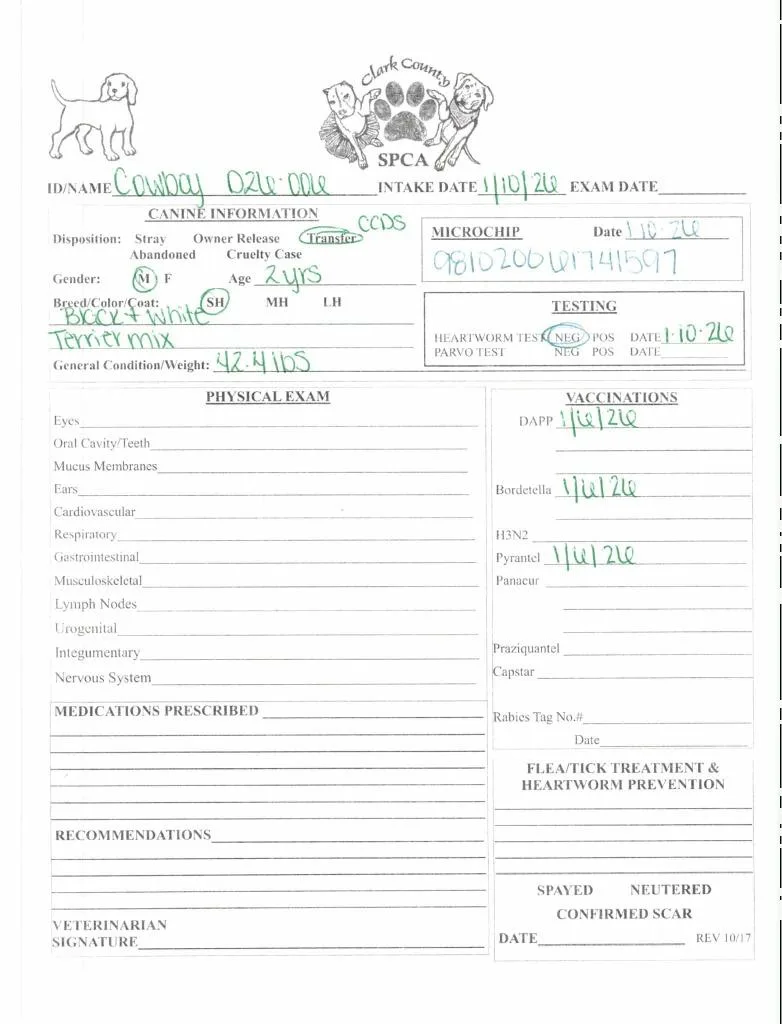 Clark County
SPCA
ID/NAME Cowboy D26-006 INTAKE DATE 1/10/26 EXAM DATE
CANINE INFORMATION
CCDS
Disposition: Stray Owner Release Transfer
Abandoned Cruelty Case
Gender: M F Age 2yrs
Breed/Color/Coat: SH MH LH
Black + White
Terrier mix
General Condition/Weight: 42.4 lbs
MICROCHIP Date 1-10-26
TESTING
HEARTWORM TEST NEG POS DATE 1-10-26
PARVO TEST NEG POS DATE
PHYSICAL EXAM
Eyes
Oral Cavity/Teeth
Mucus Membranes
Ears
Cardiovascular
Respiratory
Gastrointestinal
Musculoskeletal
Lymph Nodes
Urogenital
Integumentary
Nervous System
MEDICATIONS PRESCRIBED
RECOMMENDATIONS
VETERINARIAN
SIGNATURE
VACCINATIONS
DAPP 1/6/26
Bordetella 1/6/26
H3N2
Pyrantel 1/6/26
Panacur
Praziquantel
Capstar
Rabies Tag No.#
Date
FLEA/TICK TREATMENT &
HEARTWORM PREVENTION
SPAYED NEUTERED
CONFIRMED SCAR
DATE REV 10/17